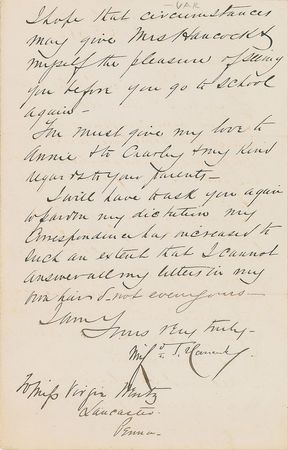 VAR
I hope that circumstances
may give Mrs Hancock &
myself the pleasure of seeing
you before you go to school
again -
You must give my love to
Annie & to Charley & my kind
regards to your parents -
I will have to ask you again
to pardon my dictation my
Correspondence has increased to
such an extent that I cannot
answer all my letters in my
own hand - not even yours -
I am
Yours very truly -
Winfd S. Hancock
To Miss Virgie Wentz
Lancaster
Penna -